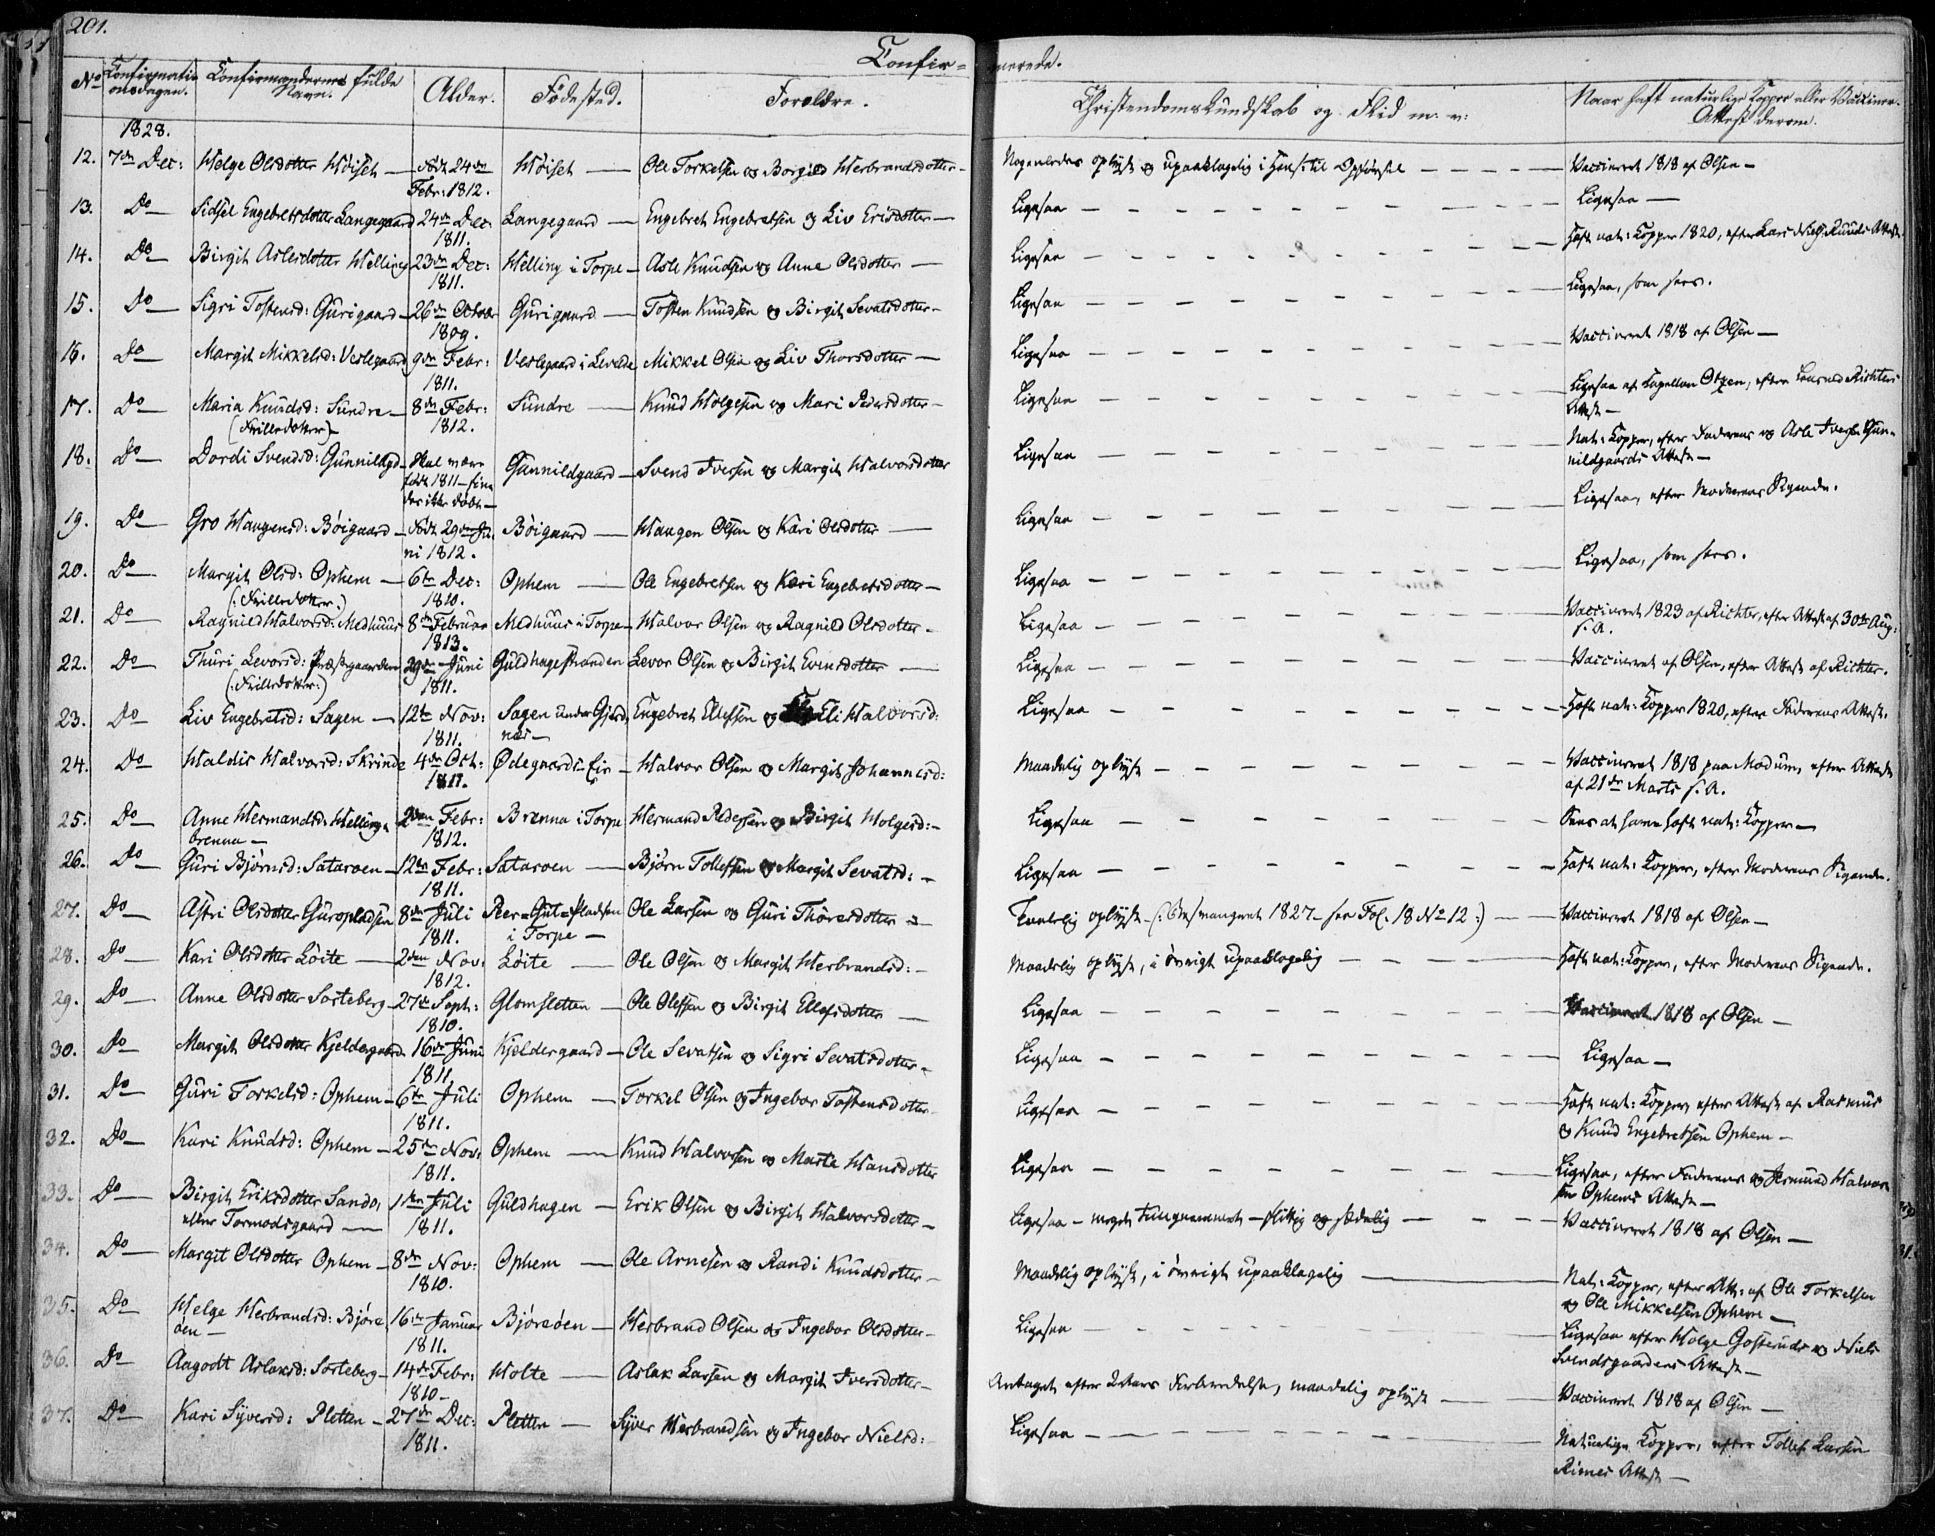 201.
Confir- merede.
No Confirmations dagen. Confirmandernes fulde Navn. Alder. Fødested. Forældre. Christendomskundskab og Flid m: v: Naar haft naturlige Kopper eller Vaccineret. Attest derom.
1828.
12. 7de Dec: Helge Olsdotter Høiset — født 24de Febr: 1812. Høiset — Ole Torkelsen og Borgild Herbrandsdotter — Nogenledes oplyst og upaaklagelig i Hensigt til Opførsel — Vaccineret 1818 af Olsen —
13. Do — Sidsel Engebretsdotter Langegaard 24de Dec: 1811. Langegaard — Engebret Engebretsen og Liv Erisdotter — Ligesaa — Ligesaa —
14. Do — Birgit Aslesdotter Helling 23de Dec: 1811. Helling i Torpe — Asle Knudsen og Anne Olsdotter — Ligesaa — Haft nat: Kopper 1820, efter Lars Niels: Ruuds Attest.
15. Do — Sigri Tostensd: Gurigaard — 26de Octobr 1809. Gurigaard — Tosten Knudsen og Birgit Sevatsdotter — Ligesaa — Ligesaa, som hers.
16. Do — Margit Mikkelsd: Veslegaard 9de Febr: 1811. Veslegaard i Leveld Mikkel Olsen og Liv Thorsdotter — Ligesaa — Vaccineret 1818 af Olsen —
17. Do — Maria Knudsd: Sundre — (Frilledotter) 8de Febr: 1812. Sundre — Knud Holgesen og Mari Pedersdotter — Ligesaa — Ligesaa af Capellan Otzen, efter Richters Attest —
18. Do — Dordi Svendsd: Gunnildgd — skal være født 1811 — findes ikke døbt — Gunnildgaard — Svend Iversen og Margit Halvorsdotter Ligesaa — Nat: Kopper, efter Faderens og Asle Iversen Gunnildgaards Attest —
19. Do — Gro Haagensd: Bøigaard — født 29de Juni 1812. Bøigaard — Haagen Olsen og Kari Olsdotter — Ligesaa — Ligesaa, efter Moderens Sigende.
20. Do — Margit Olsd: Ophem — (: Frilledotter :) 6te Dec: 1810. Ophem — Ole Engebretsen og Kari Engebretsdotter — Ligesaa — Ligesaa, som hers.
21. Do — Ragnild Halvorsd: Medhuus 8de Februar 1813. Medhuus i Torpe — Halvor Olsen og Ragnild Olsdotter — Ligesaa — Vaccineret 1823 af Richter, efter Attest af 30te Aug: s. A.
22. Do — Thuri Levorsd: Præstgaarden (: Frilledotter :) 29de Juni 1811. Guldhagestranden Levor Olsen og Birgit Evensdotter — Ligesaa — Vaccineret af Olsen, efter Attest af Richter.
23. Do — Liv Engebretsd: Sagen — 12te Nov: 1811. Sagen under Gjerdnæs — Engebret Ellefsen og Eli Halvorsd: Ligesaa — Haft nat: Kopper 1820, efter Faderens Attest.
24. Do — Haldis Halvorsd: Skrinde 4de Oct: 1811. Ødegaard i Eie — Halvor Olsen og Margit Johannesd: Maadelig oplyst — Vaccineret 1818 paa Modum, efter Attest af 21de Marts s. A.
25. Do — Anne Hermandsd: Hellingbrenna — 2den Febr: 1812. Brenna i Torpe Hermand Pedersen og Birgit Holgersd: — Ligesaa — Sees at have haft nat: Kopper —
26. Do — Guri Bjørnsd: Sataroen — 12te Febr: 1811. Sataroen — Bjørn Tollefsen og Margit Sevatsd: — Ligesaa — Haft nat: Kopper, efter Moderens Sigende.
27. Do — Astri Olsdotter Guropladsen 8de Juli 1811. Peer-Gut-Pladsen i Torpe — Ole Larsen og Guri Thoresdotter — oplyst — 1827 — see Fol: 18 No 12:) — Vaccineret 1818 af Olsen —
28. Do — Kari Olsdotter Løite — 2den Nov: 1812. Løite — Ole Olsen og Margit Herbrandsd: — Maadelig oplyst, i øvrigt upaaklagelig — Haft nat: Kopper, efter Moderens Sigende.
29. Do — Anne Olsdotter Sorteberg — 27de Sept: 1810. Glomsletten — Ole Olefsen og Birgit Ellefsdotter — Ligesaa — Vaccineret 1818 af Olsen —
30. Do — Margit Olsdotter Kjeldergaard 16de Juni 1811. Kjeldergaard — Ole Sevatsen og Sigri Sevatsdotter — Ligesaa — Ligesaa —
31. Do — Guri Torkelsd: Ophem — 6te Juli 1811. Ophem — Torkel Olsen og Ingebor Tostensdotter Ligesaa — Haft nat: Kopper, efter Attest af Rasmus og Knud Engebretsen Ophem —
32. Do — Kari Knudsd: Ophem — 25de Nov: 1811. Ophem — Knud Halvorsen og Marte Hansdotter Ligesaa — Ligesaa, efter Faderens og Asmund Halvorsen Ophems Attest —
33. Do — Birgit Eriksdotter Sando, eller Tormodsgaard — 1ste Juli 1811. Guldhagen — Erik Olsen og Birgit Halvorsdotter — Ligesaa — meget tungnemmet — flittig og sædelig — Vaccineret 1818 af Olsen —
34. Do — Margit Olsdotter Ophem — 8de Nov: 1810. Ophem — Ole Arnesen og Randi Knudsdotter — Maadelig oplyst, i øvrigt upaaklagelig — Nat: Kopper, efter Att: af Ole Torkelsen og Ole Mikkelsen Ophem —
35. Do — Helge Herbrandsd: Bjøreøen — 16de Januar 1811. Bjøreøen — Herbrand Olsen og Ingebor Olsdotter — Ligesaa — Ligesaa efter Holge Gosteruds og Niels Svendsgaardens Attest —
36. Do — Aagodt Aslaksd: Sorteberg — 14de Febr: 1810 — Holte — Aslak Larsen og Margit Iversdotter — Antaget efter 2 Aars Forberedelse, maadelig oplyst — Vaccineret 1818 af Olsen —
37. Do — Kari Syversd: Pletten — 27de Dec: 1811. Pletten — Syver Herbrandsen og Ingebor Nielsd: Ligesaa — Naturlige Kopper, efter Tollef Larsen Rimes Attest —